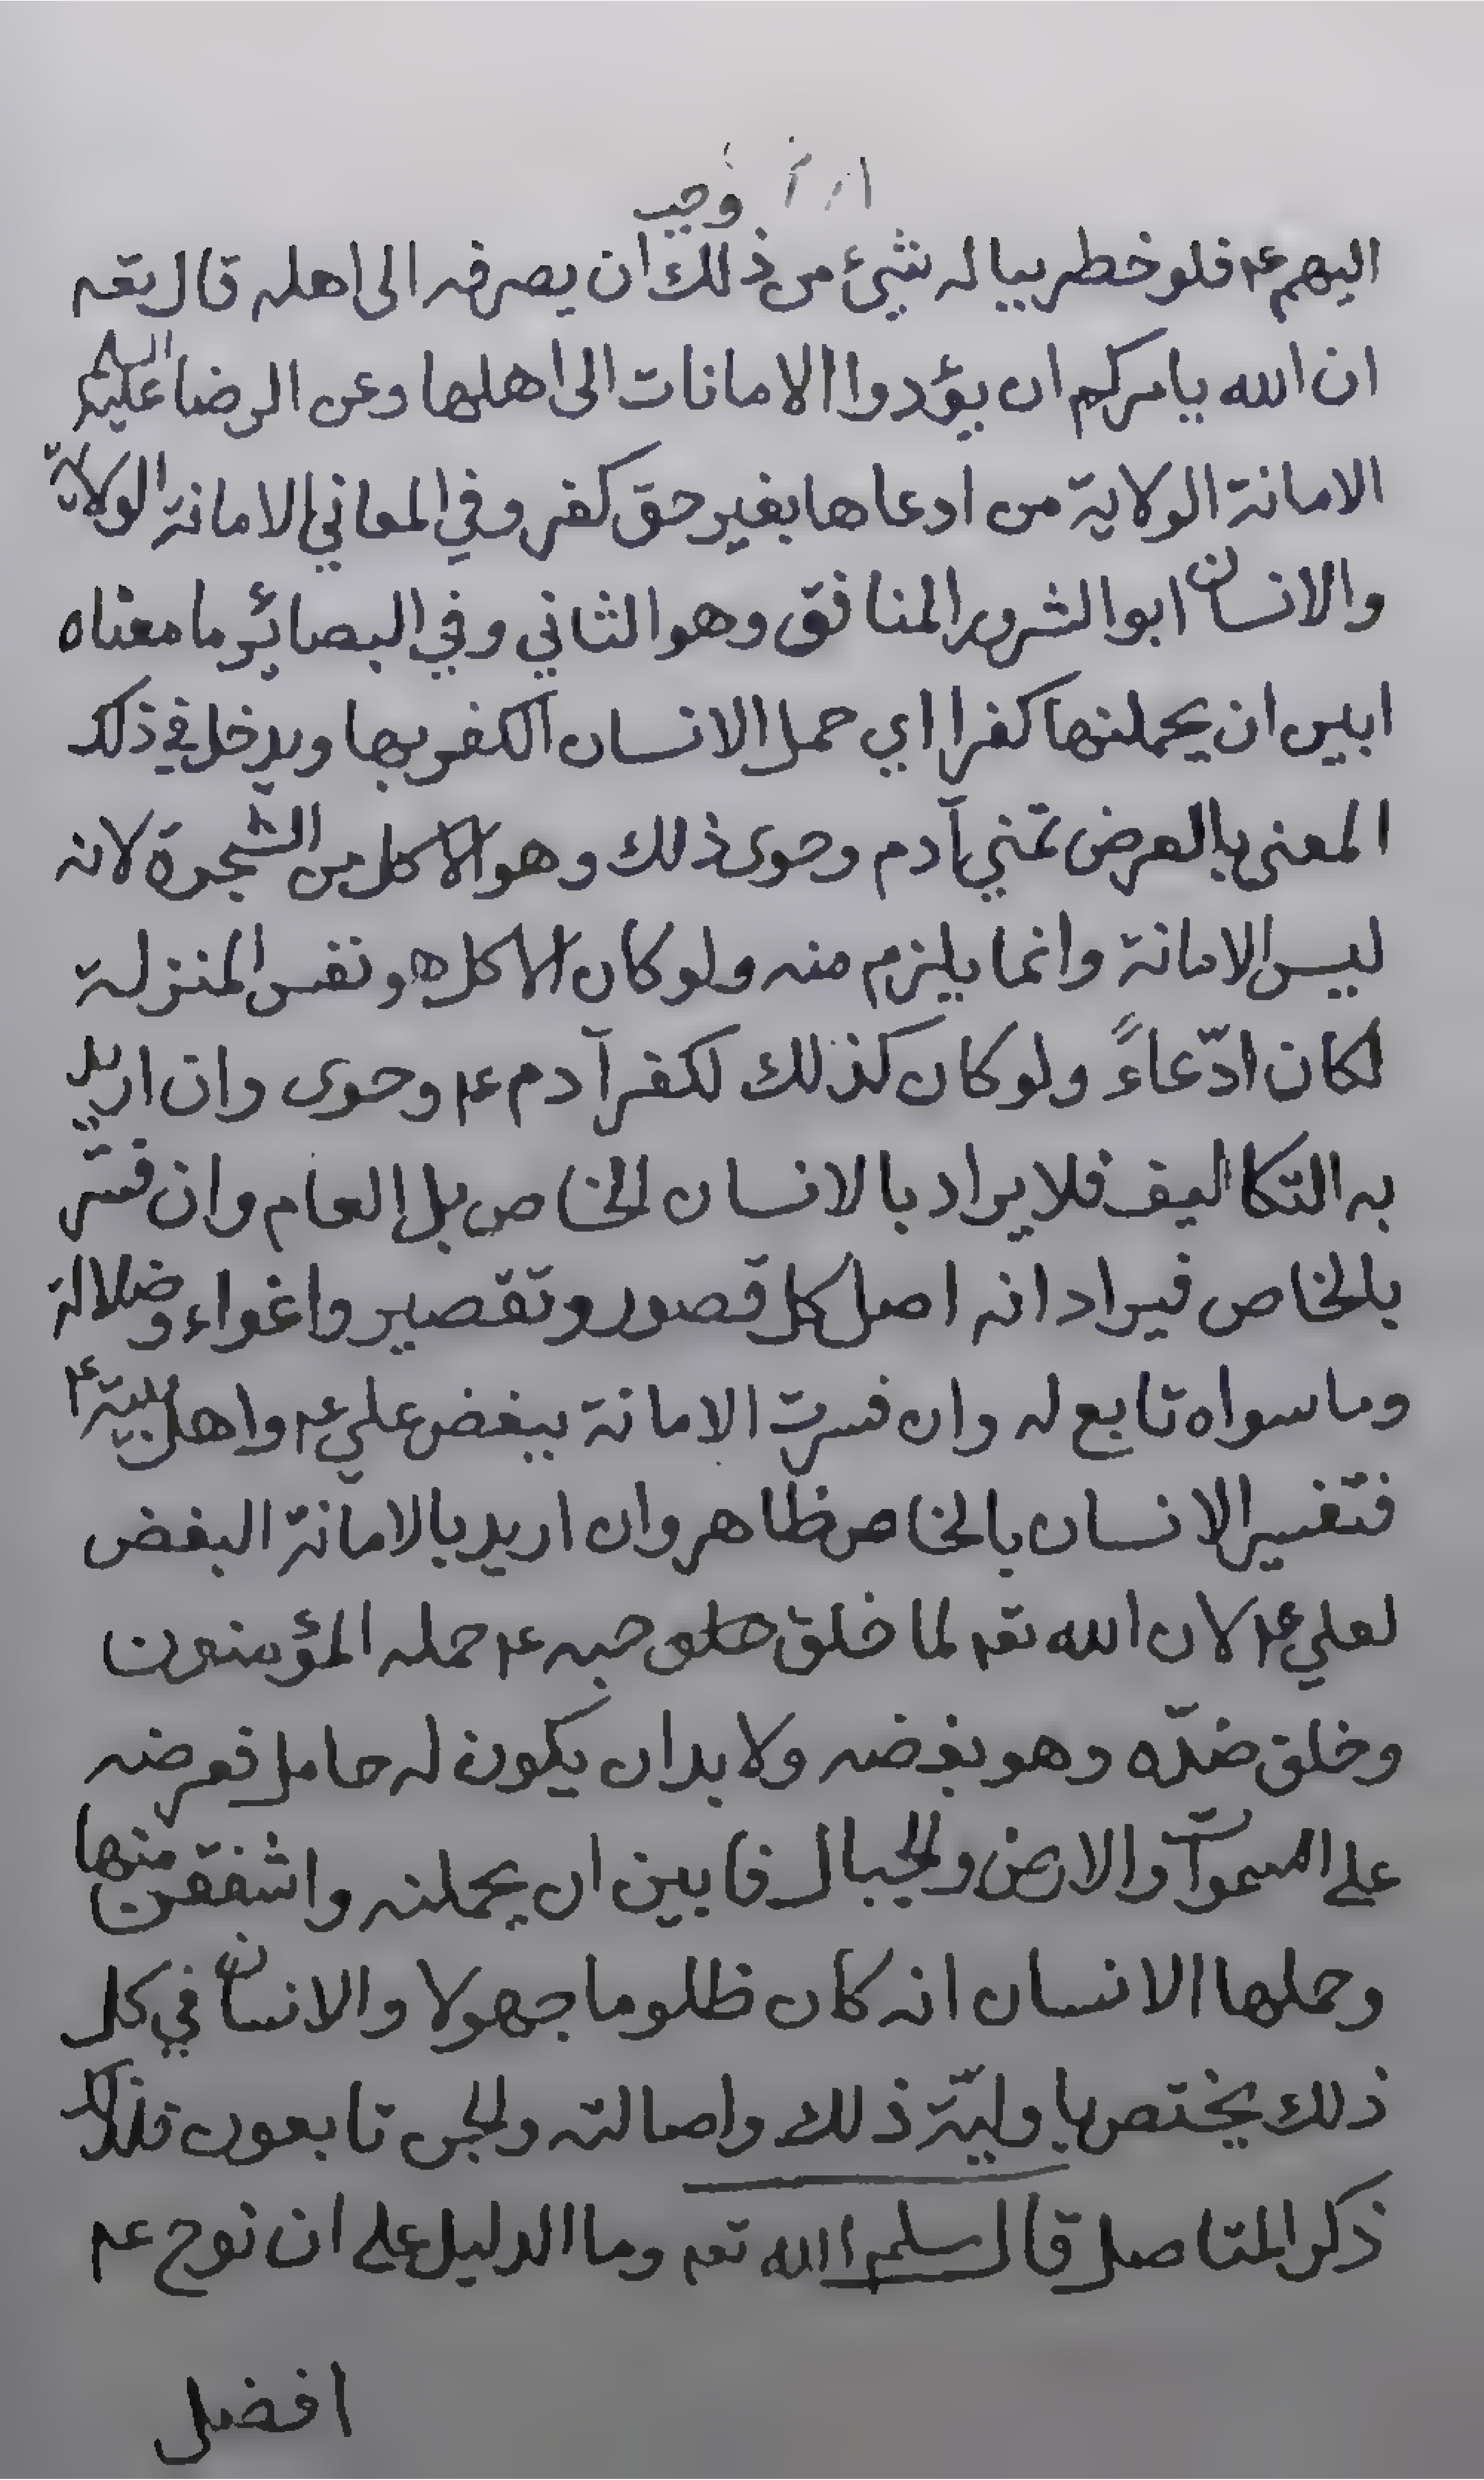 وجب
اليهم ع۴ فلو خطر بباله شيئ من ذلك ان يصرفه الى اهله قال تعه
ان الله يامركم ان يؤدوا الامانات الى اهلها وعن الرضا عليه السلم
الامانة الولاية من ادعاها بغير حق كفر وفي المعاني الامانة الولاية
والانسان ابوالشرور المنافق وهو الثاني وفي البصائر ما معناه
ابين ان يحملنها كفرا اي حمل الانسان الكفر بها ويدخل في ذلك
المعنى بالعرض تمني آدم وحوى ذلك وهو الاكل من الشجرة لانه
ليس الامانة وانما يلزم منه ولو كان الاكل هو نفس المنزلة
لكان ادّعاءً ولو كان كذلك لكفر آدم ع۴ وحوى وان اريد
به التكاليف فلا يراد بالانسان الخاص بل العام وان فسّر
بالخاص فيراد انه اصل كل قصور وتقصير واغواء وضلالة
وما سواه تابع له وان فسرت الامانة ببغض علي ع۴ واهل بيته ع۴
فتفسير الانسان بالخاص ظاهر وان اريد بالامانة البغض
لعلي ع۴ لان الله تعه لما خلق حبه ع۴ حمله المؤمنون
وخلق ضدّه وهو بغضه ولا بد ان يكون له حامل فعرضه
على السموات والارض والجبال فابين ان يحملنه واشفقن منها
وحملها الانسان انه كان ظلوما جهولا والانسان في كل
ذلك يختص باوليّة ذلك واصالته والجن تابعون فلذلك
ذكر المتاصل قال سلمه الله تعه وما الدليل على ان نوح ع۴
افضل